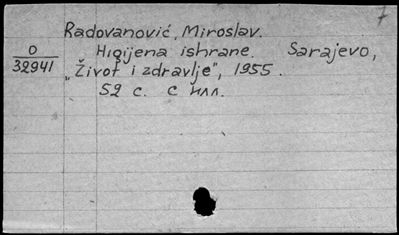 7
Radovanović, Miroslav.
Higijena ishrane. Sarajevo,
O
32941
„Život i zdravlje", 1955.
52 с. с илл.